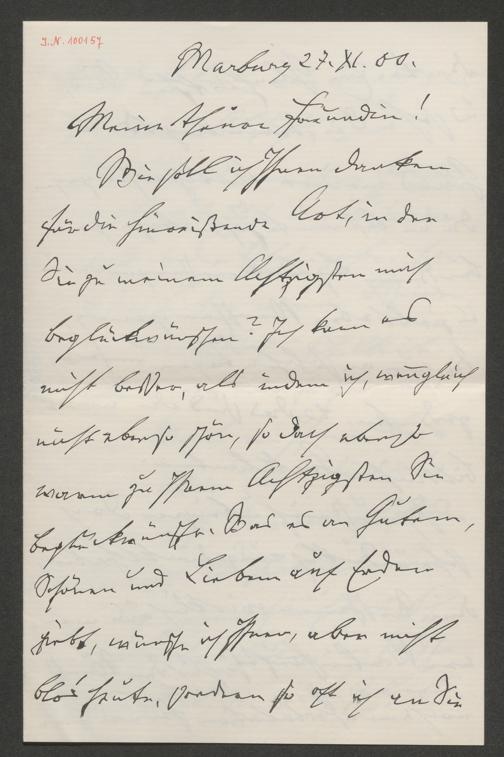 J.N. 100157
Marburg 27. XI. 00.
Meine theure Freundin!
Wie soll ich Ihnen danken
für die hinreißende Art, in der
Sie zu meinem Achtzigsten mich
beglückwünschen? Ich kann es
nicht besser, als indem ich, wenngleich
nicht ebenso schön, so doch ebenso
warm zu Ihrem Achtzigsten Sie
beglückwünsche. Was es an Gutem,
Schönen und Liebem auf Erden
giebt, wünsche ich Ihnen, aber nicht
blos heute, sondern so oft ich an Sie